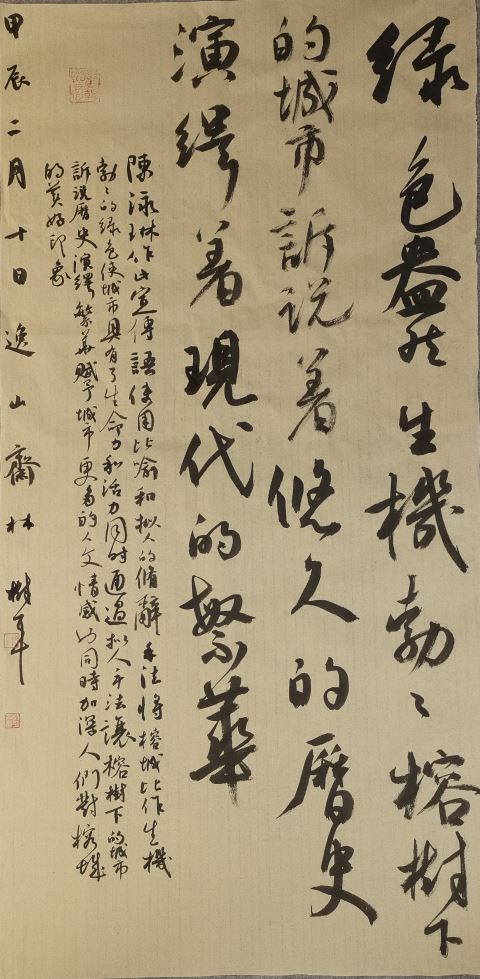 绿色盎然生機勃〻榕樹下
的城市訴说着悠久的曆史
演绎着現代的繁華
陳泳琳作此宣傳語使用比喻和拟人的脩辭手法將榕城比作生機
勃〻的绿色使城市具有了生命力和活力同时通過拟人手法讓榕樹下的城市
訴说曆史演繹繁華赋予城市更多的人文情感的同時加深人們對榕城
的美好印象
甲辰二月十日逸山齋林樹華